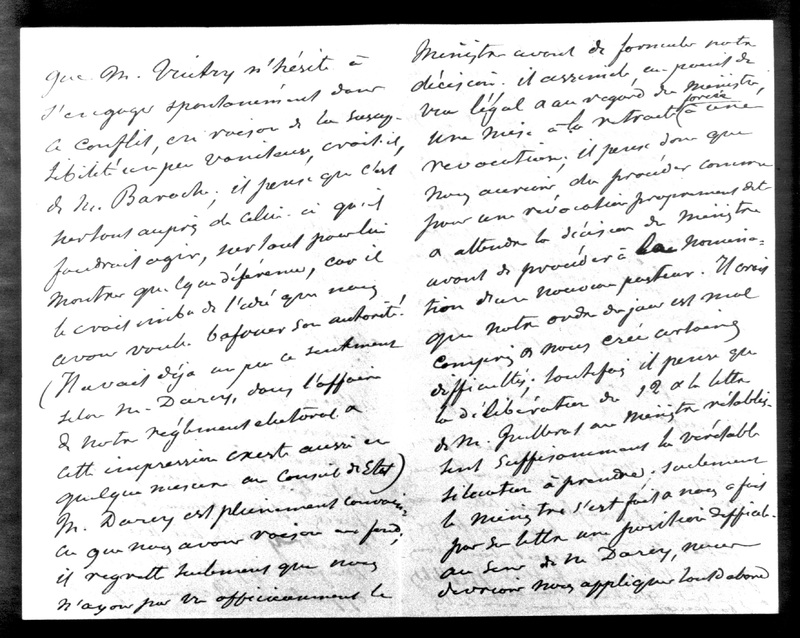 que M. Vuitry n'hésite à
s'engager spontanément dans
ce conflit, en raison de la suscep-
tibilité un peu vaniteuse, croit-il,
de M. Baroche; il pense que c'est
surtout auprès de celui-ci qu'il
faudrait agir, surtout pour lui
montrer quelque déférence, car il
le croit imbu de l'idée que nous
avons voulu bafouer son autorité.
(Il avait déjà un peu ce sentiment
selon M. Darcy, dans l'affaire
de notre règlement electoral &
cette impression existe aussi en
quelque mesure au Conseil d'Etat)
M. Darcy est pleinement convain-
cu que nous avons raison au fond;
il regrette seulement que nous
n'ayons pas vu officieusement le
Ministre avant de formuler notre
décision. il assimile, au point de
vue légal & au regard du Ministre,
une mise à la retraite forcée à une
revocation; il pense donc que
nous aurions du procéder comme
pour une révocation proprement dite
& attendre la décision du Ministre
avant de procéder à la nomina-
tion d'un nouveau pasteur. Il croit
que notre ordre du jour est mal
compris & nous crée certaines
difficultés; toutefois il pense que
la délibération du 12 & la lettre
de M. au Ministre rétablis-
sent suffisamment la véritable
situation à prendre. seulement
le ministre s'est fait & nous a fait
par sa lettre une position difficile.
au sens de M Darcy, nous
devrions nous appliquer tout d'abord